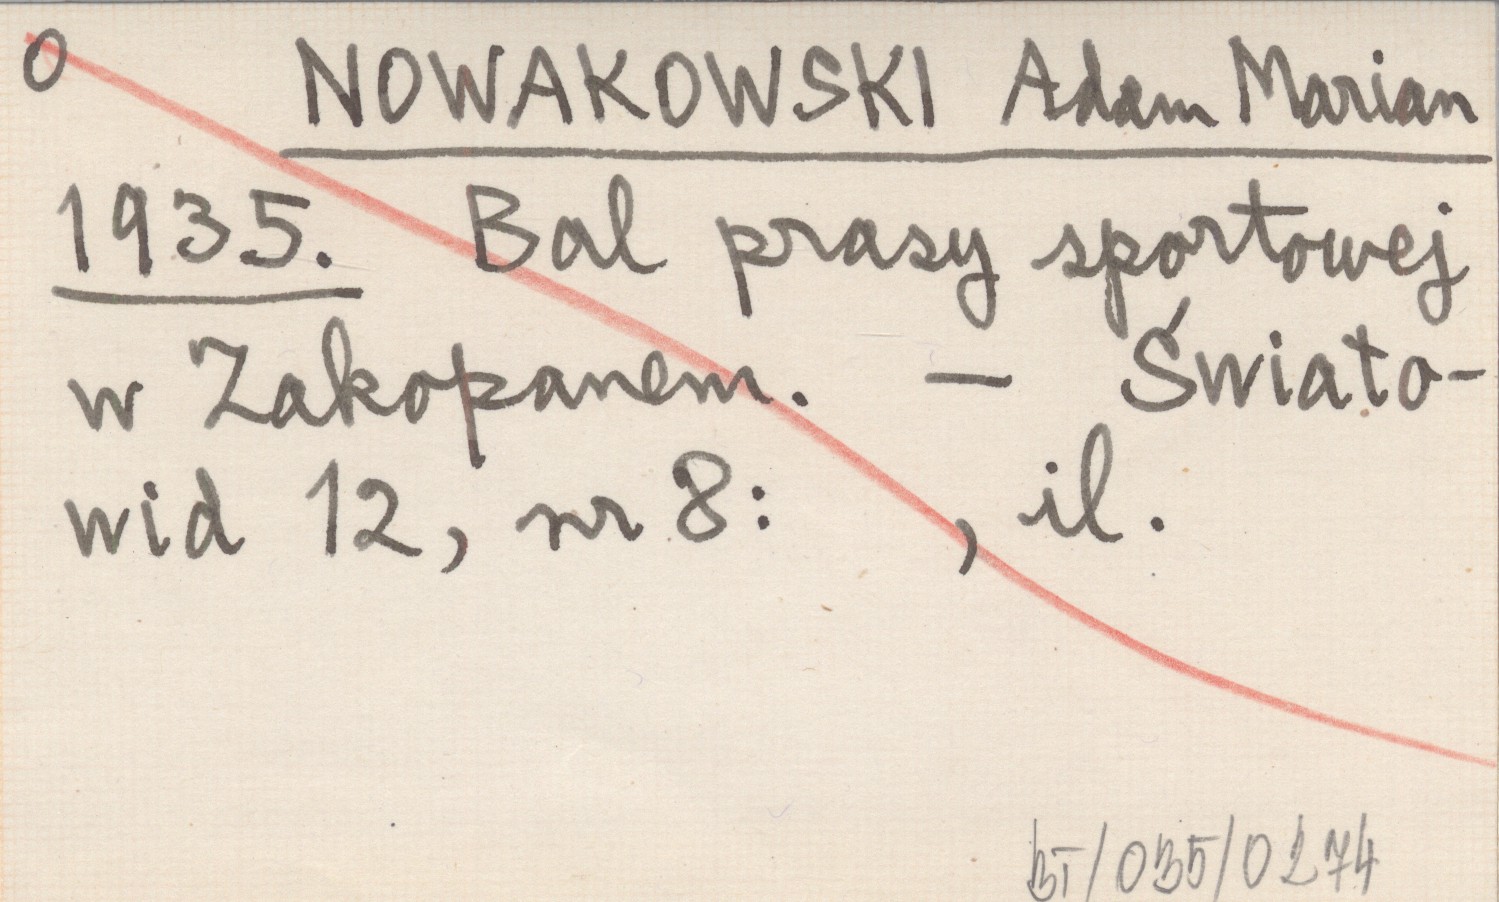 O NOWAKOWSKI Adam Marian
1935. Bal prasy sportowej
w Zakopanem. – Świato-
wid 12, nr 8: , il.
BT/035/0274